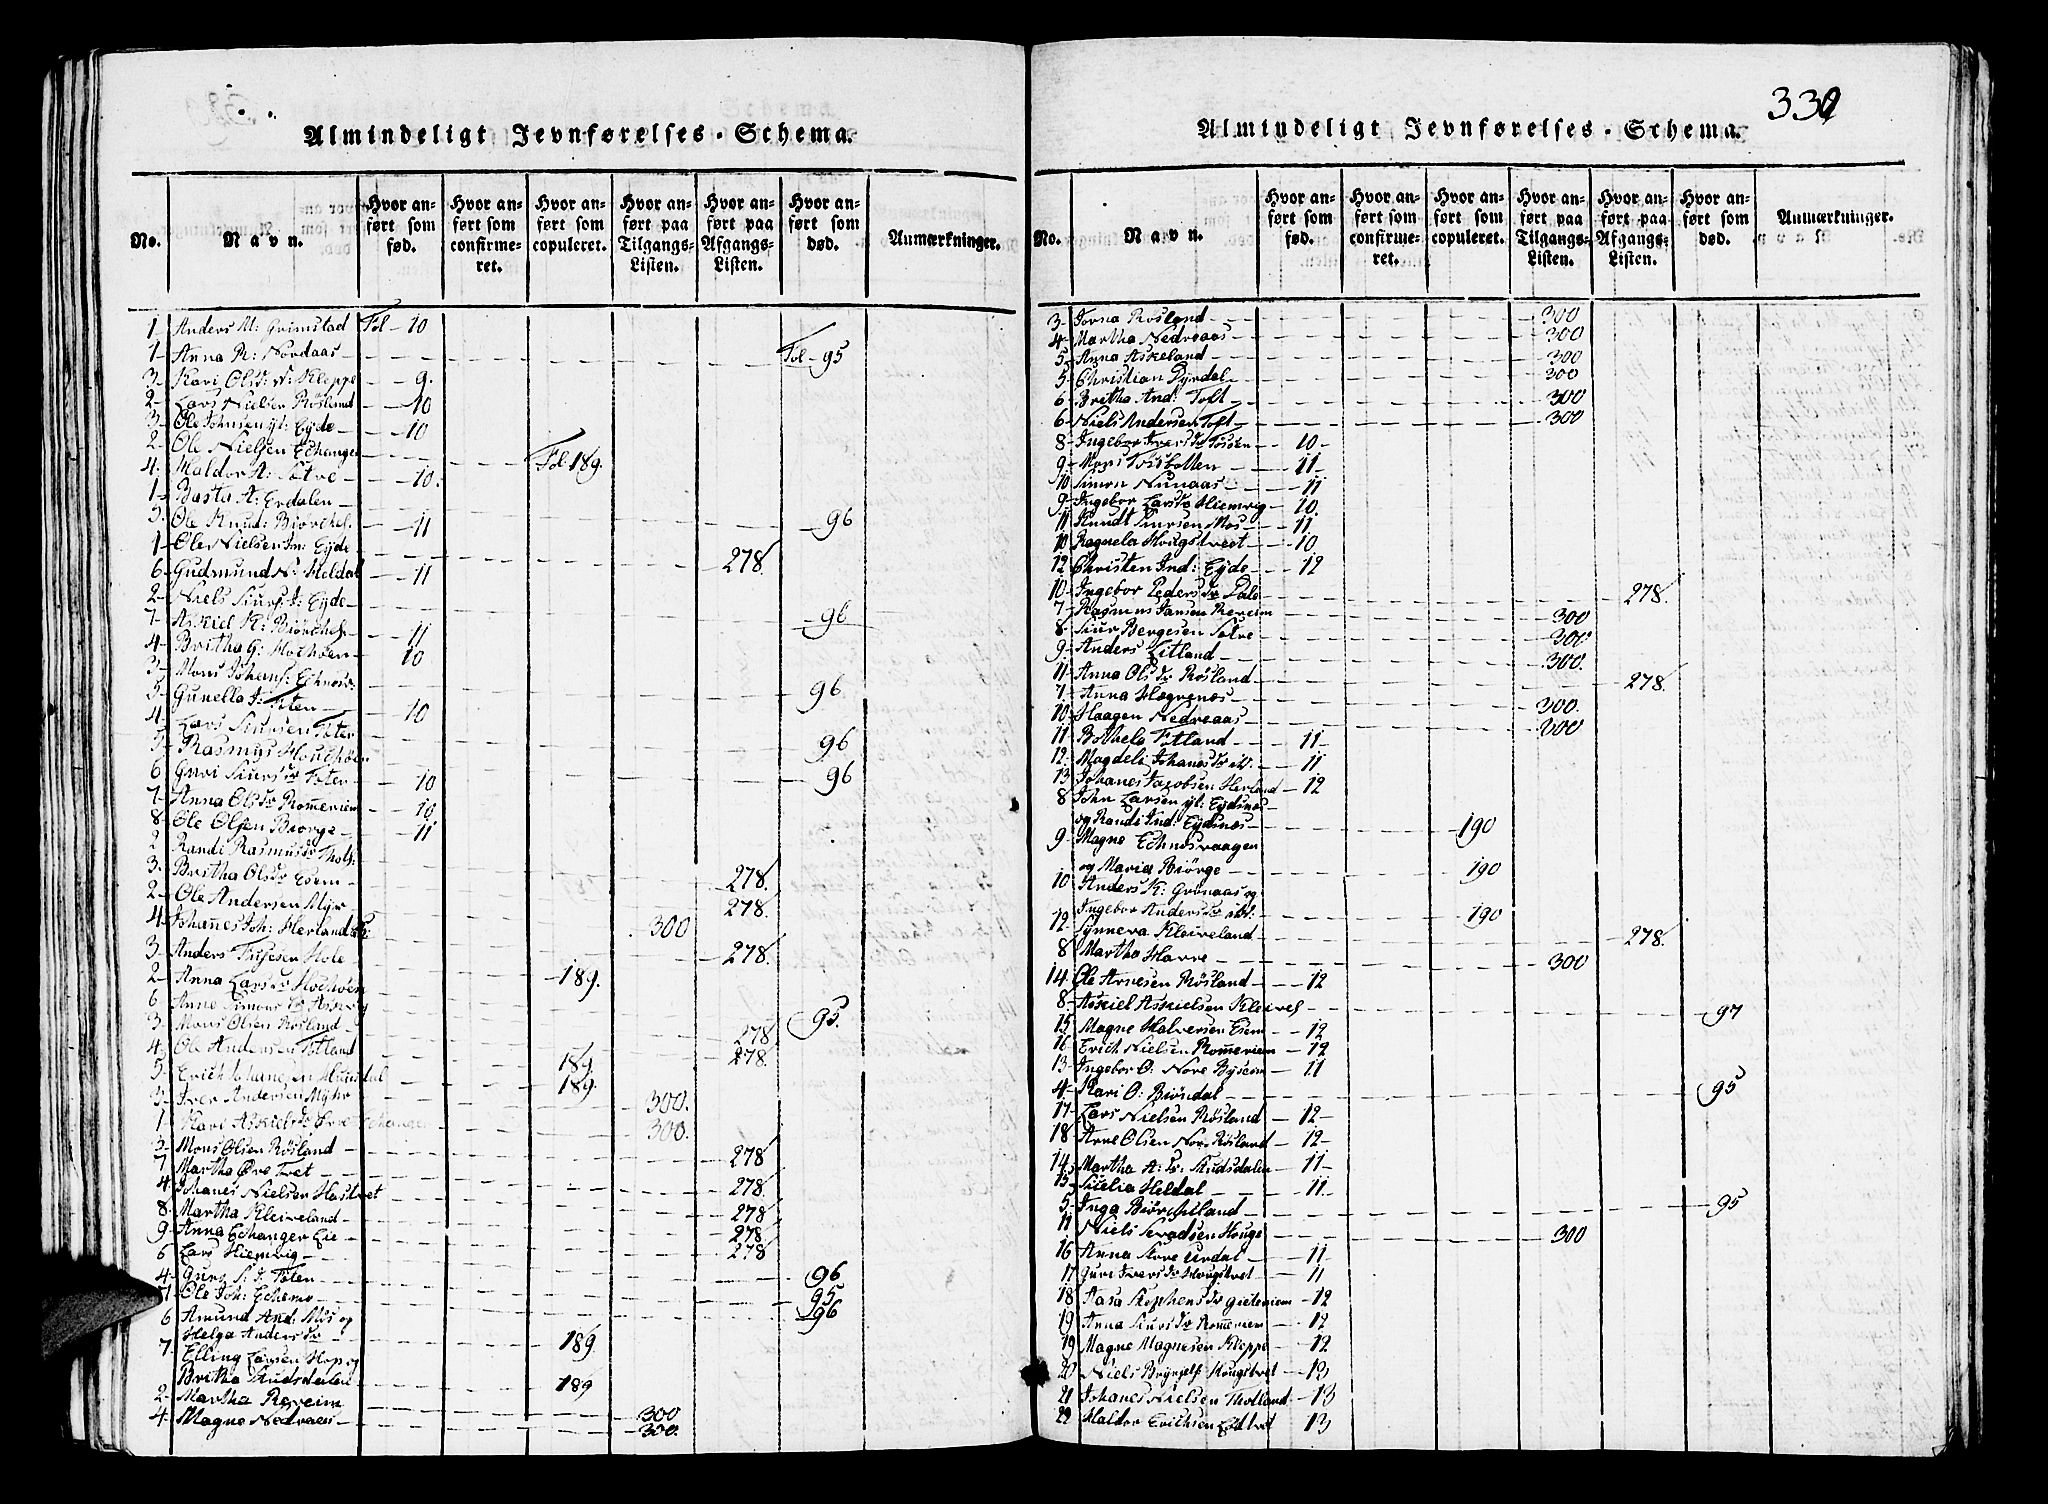 330
Almindeligt Jevnførelses-Schema.
No.
Navn.
Hvor anført som fød.
Hvor anført som confirmeret.
Hvor anført som copuleret.
Hvor anført paa Tilgangs-Listen.
Hvor anført paa Afgangs-Listen.
Hvor anført som død.
Anmærkninger.
1- Anders M: Grimstad Fol-10
1- Anna R: Nordaas - Fol-95
3- Kari Olsdr: Kleppe - 9.
2- Lars Nielsen Røsland - 10
3- Ole Johnsen yt: Eyde - 10
2- Ole Nielsen Echanger Fol-189.
4. Haldor A: Søtve - 10.
1- Basta A: Erdalen - 96
5. Ole Knud: Biørchef. - 11
1- Ole Nielsen In: Eyde - 278.
6- Gudmund N: Heldal - 11
2- Niels Siurs: I: Eyde - 96
7- Askiel K: Biørchef - 11
4- Britha G: Hochøen - 10
3- Mons Johans: Echness: 96
5- Gunella J: Foten - 10
4. Lars Siursen Foter 96
5- Rasmus Houchøen 96
6 Guri Siursdr Foter - 10
7- Anna Olsdr Rommeriem - 10
8- Ole Olsen Biørge - 11
2 Randi Rasmusdr Thots:
3. Britha Olsdr Esem - 278.
2- Ole Andersen Myr - 278.
4. Johanes Joh: Herland 300
3- Anders Thisesen Hole - 278.
2- Anna Larsdr Hochøen 189.
6 Anne Simonsdr 95.
3- Mons Olsen Røsland - 278
4. Ole Andersen Totland 189. 278.
5- Erich Johanesen 189.
3- Iver Andersen Myhr 300.
1- Kari Askielsdr 300.
3- Mons Olsen Røsland - 278
7 Martha Øvre Tvet -
4. Johanes Nielsen Hastvet 278.
8- Martha Kleiveland - 278
9- Anna Echanger Eie - 278
6 Lars Hiemvig - 278
4- Guro S: D: Foten - 96
Ole Joh: Echeme - 95
6 Amund And: Mos og 96
Helga Andersdr - 189
7. Elling Larsen Hop og
Britha Skudsdalen 189
2- Martha Reveim 300
4. Magne Nedraas - 300.
Almindeligt Jevnførelses-Schema.
No.
Navn.
Hvor anført som fød.
Hvor anført som confirmeret.
Hvor anført som copuleret.
Hvor anført paa Tilgangs-Listen.
Hvor anført paa Afgangs-Listen.
Hvor anført som død.
Anmærkninger.
3- Torna Røsland - 300
4- Martha Nedreaas - 300
5. Anna Askeland - 300
5- Christian Dyrdal - 300
6 Britha And: Toft - 300
6- Niels Andersen Toft - 300
8- Ingebor Iversdr Tossen - 10-
9- Mons Trisbotten - 11-
10 Simon Nunaas - 11
9- Ingebor Larsdr Hiemvig - 10.
11 Knudt Siursen Mos - 11
10 Ragnela Hougstvedt - 10
12 Christen Ind: Eyde - 12
10- Ingebor Pedersdr Dale 278.
7- Rasmus Jansen Reveim 300
8- Siur Bergesen Søtve 300
9- Anders Litland - 300.
11- Anna Olsdr Røsland 278.
7- Anna Hægrenæs - 300.
10- Haagen Nedreaas - 300
11- Bothela Totland - 11-
12. Magdeli Johanesdr ib. - 11
13. Johanes Jacobsen Herland - 12
8 John Larsen yt: Eydsnes -
og Randi Ind: Eydsnes - 190
9- Magne Echnesvaagen
og Maria Biørge - 190
10 Anders K: Grønaas og
Ingebor Andersdr ibd: 190
12- Synneva Kleiveland - 278.
8 Martha Harre - 300
14. Ole Arnesen Røsland - 12
8- Askiel Askielsen Kleivel 97
15 Magne Halversen Esem - 12
16 Erich Nielsen Rommeriem - 12
13- Ingebor O: Nore Byseim - 11
4- Kari O: Biørsdal - 95
17- Lars Nielsen Røsland - 12-
18- Arne Olsen Nor- Røsland - 12-
14- Martha A: Dr Skudsdalen - 11-
15 Siselia Heldal - 11.
5- Inga Biørcheland - 95
11 Niels Houge 300
16 Anna Store Urdal - 11-
17 Guri Iversdr Hougstvet - 11
18 Aasa Stephensdr Gieteriem - 12
19 Anna Siursdr Rommeriem - 12
19 Magne Magnesen Kleppe - 12
20 Niels Brynjelf Hougstvet - 13
21 Johanes Nielsen Thotland - 13
22 Haldor Erichsen Lodtvet 13